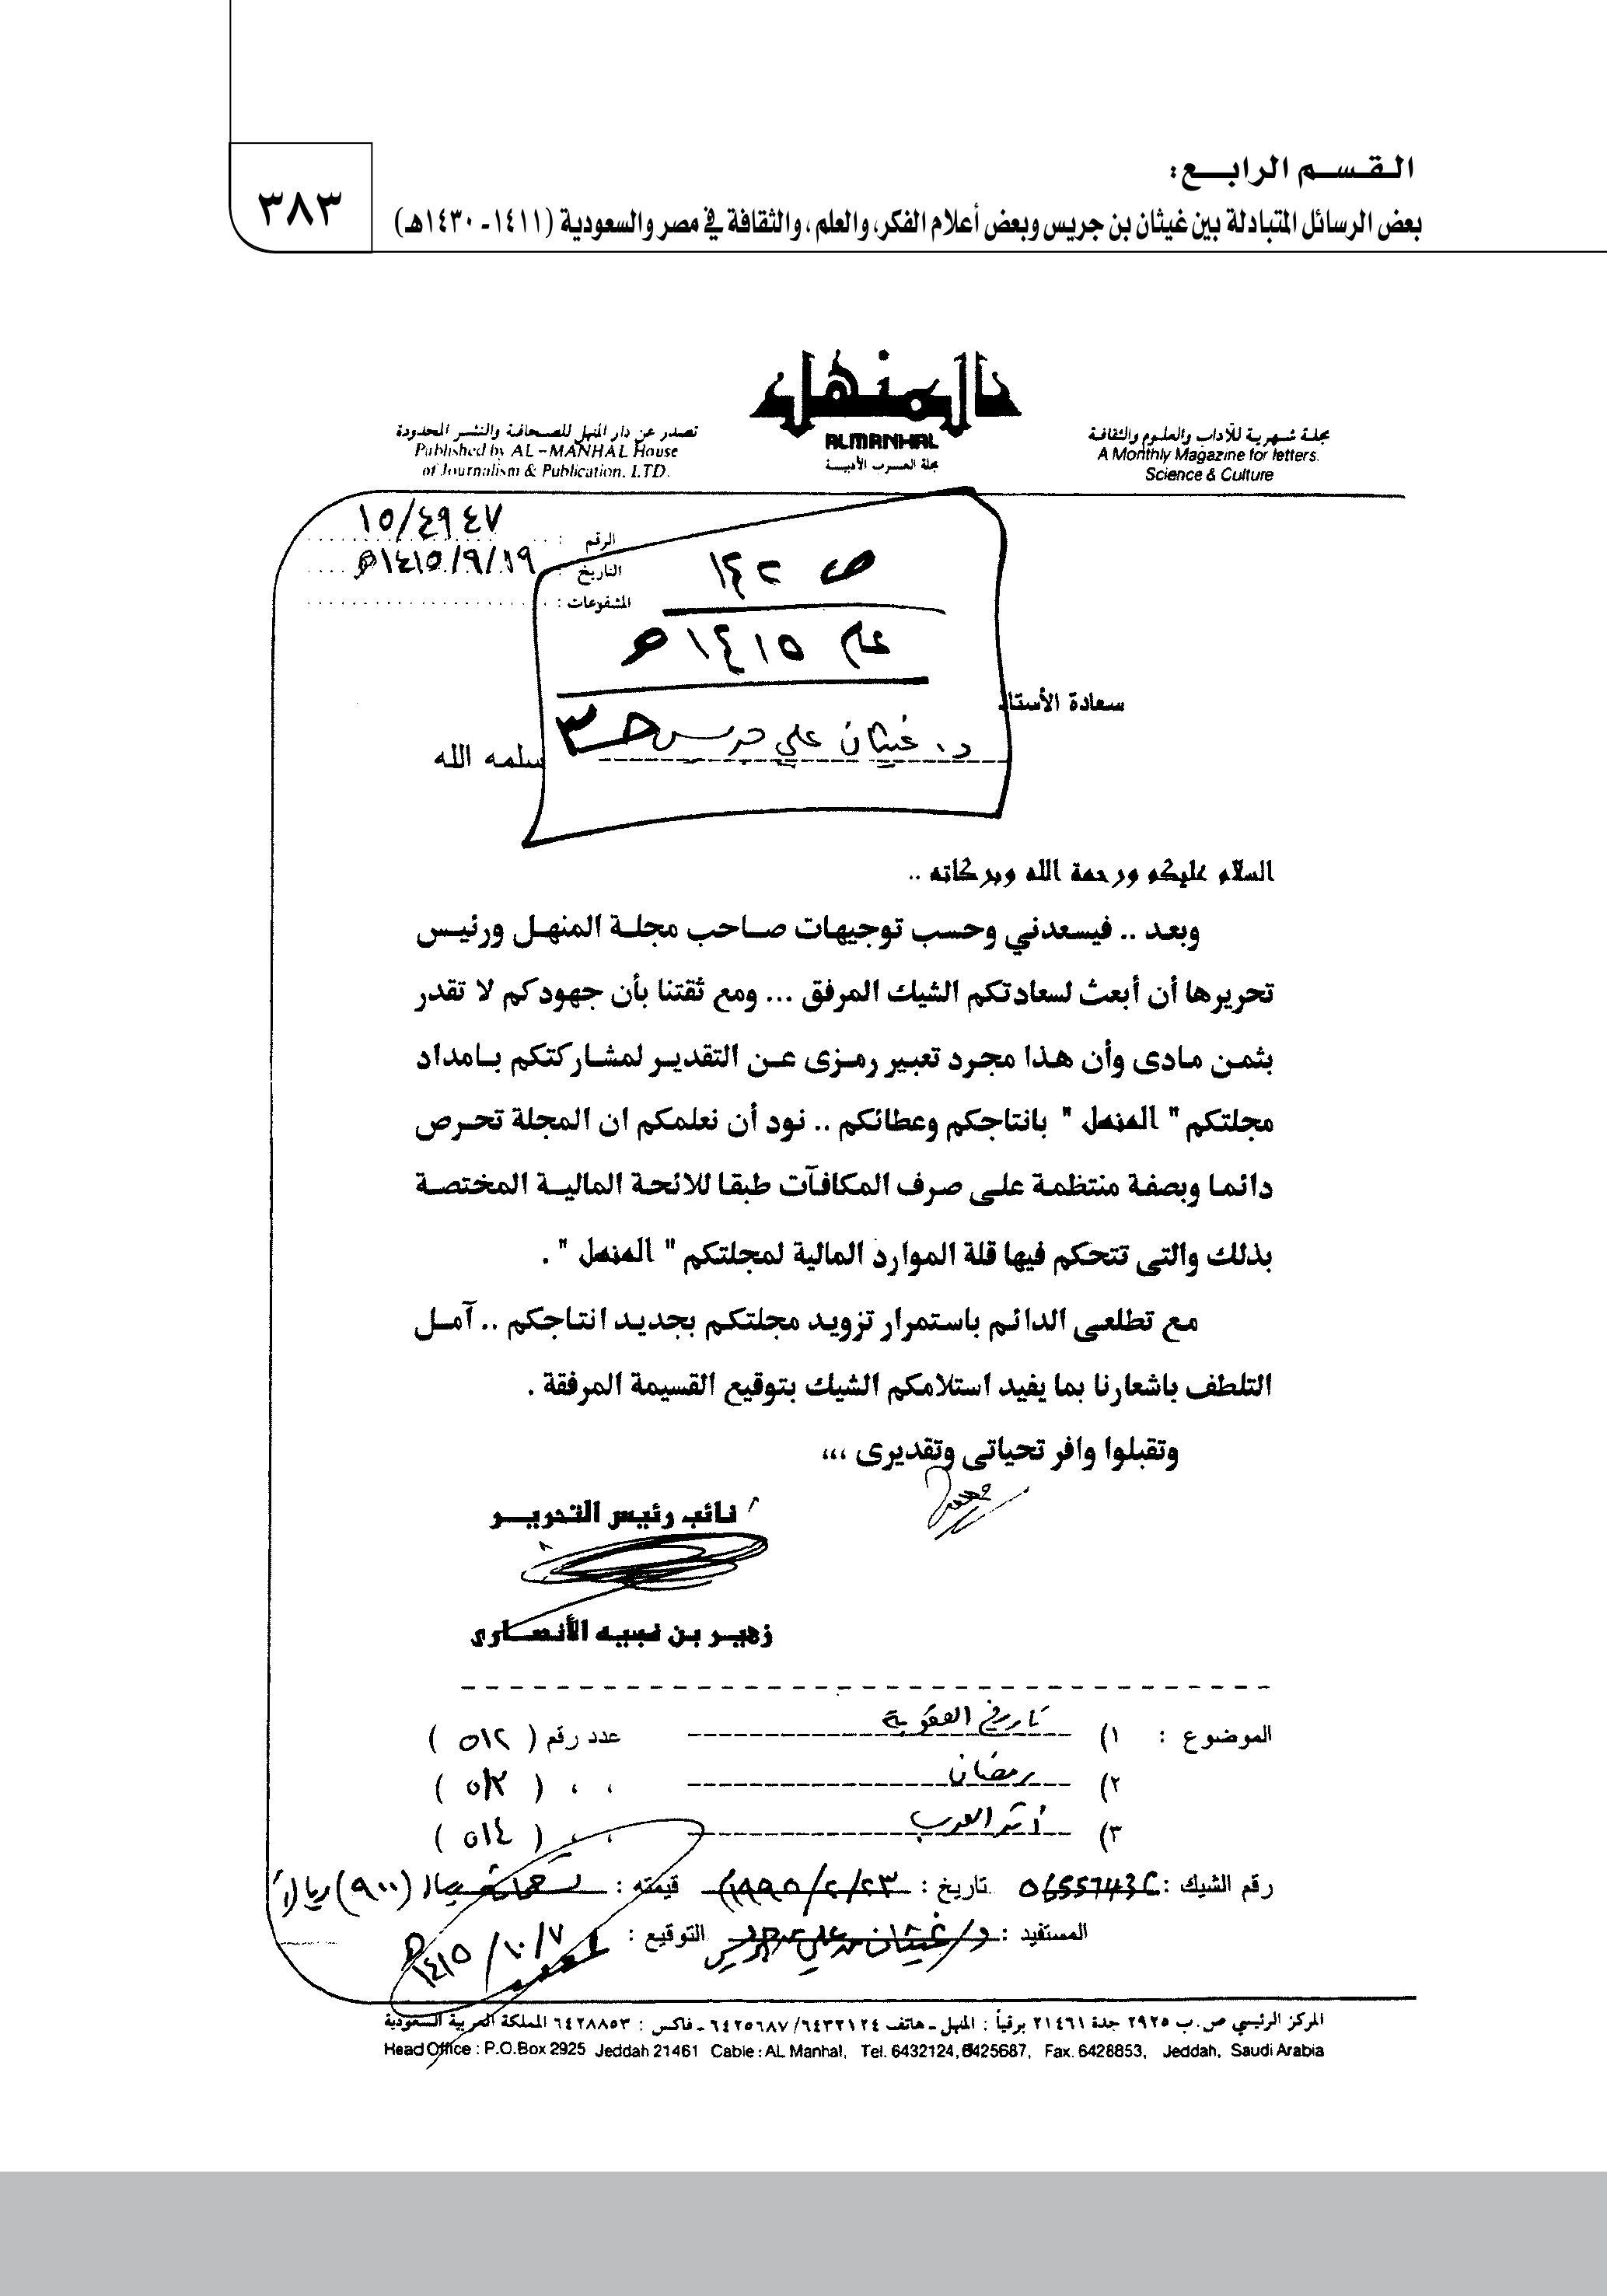 القسم الرابع:
بعض الرسائل المتبادلة بين غيثان بن جريس وبعض أعلام الفكر، والعلم، والثقافة في مصر والسعودية (١٤١١- ١٤٣٠هـ)
٣٨٣
المنهل
ALMANHAL
مجلة العرب الأدبية
مجلة شهرية للآداب والعلوم والثقافة
A Monthly Magazine for letters.
Science & Culture
تصدر عن دار المنهل للصحافة والنشر المحدودة
Published by AL-MANHAL House
of Journalism & Publication. LTD.
الرقم : ١٥/٤٩٤٧
التاريخ : ١٤١٥/٩/١٩هـ
المشفوعات :
ص ١٤٢
عام ١٤١٥هـ
حـ٣
سعادة الأستاذ
د. غيثان علي جريس سلمه الله
السلام عليكم ورحمة الله وبركاته ..
وبعد .. فيسعدني وحسب توجيهات صاحب مجلة المنهل ورئيس
تحريرها أن أبعث لسعادتكم الشيك المرفق ... ومع ثقتنا بأن جهودكم لا تقدر
بثمن مادى وأن هذا مجرد تعبير رمزى عن التقدير لمشاركتكم بامداد
مجلتكم " المنهل " بانتاجكم وعطائكم .. نود أن نعلمكم ان المجلة تحرص
دائما وبصفة منتظمة على صرف المكافآت طبقا للائحة المالية المختصة
بذلك والتى تتحكم فيها قلة الموارد المالية لمجلتكم " المنهل " .
مع تطلعى الدائم باستمرار تزويد مجلتكم بجديد انتاجكم .. آمل
التلطف باشعارنا بما يفيد استلامكم الشيك بتوقيع القسيمة المرفقة .
وتقبلوا وافر تحياتى وتقديرى ،،،
نائب رئيس التحرير
زهير بن نبيه الأنصارى
الموضوع : ١) تاريخ العقوبة عدد رقم ( ٥١٢ )
٢) رمضان ، ، ( ٥١٢ )
٣) أثر العرب ، ، ( ٥١٤ )
رقم الشيك : تاريخ : ١٩٩٥/٢/٢٣ قيمته : (٩٠٠) ريالاً
المستفيد : د/ غيثان علي جريس التوقيع : ١٤١٥/١٠/٧هـ
المركز الرئيسي ص.ب ٢٩٢٥ جدة ٢١٤٦١ برقياً : المنهل - هاتف ٦٤٣٢١٢٤/ ٦٤٢٥٦٨٧ - فاكس : ٦٤٢٨٨٥٣ المملكة العربية السعودية
Head Office : P.O.Box 2925 Jeddah 21461 Cable : AL Manhal, Tel. 6432124, 6425687, Fax. 6428853, Jeddah, Saudi Arabia